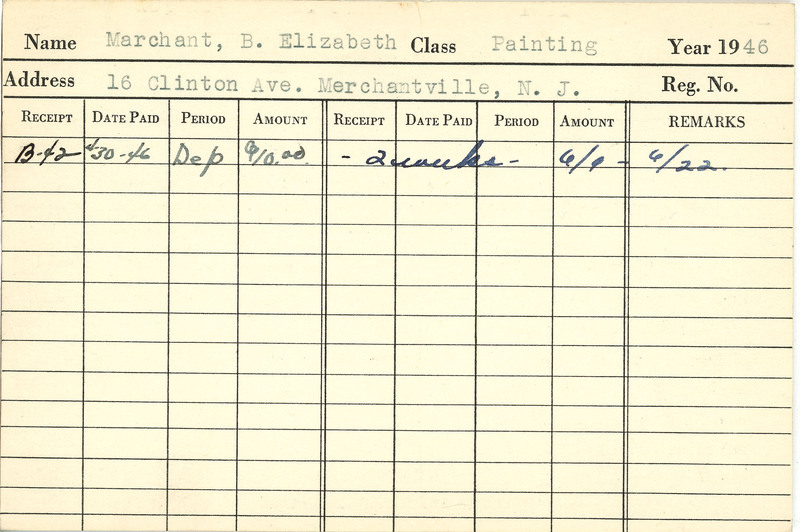 Name Marchant, B. Elizabeth Class Painting Year 1946
Address 16 Clinton Ave. Merchantville, N. J. Reg. No.
RECEIPT DATE PAID PERIOD AMOUNT RECEIPT DATE PAID PERIOD AMOUNT REMARKS
B-42 4/30-46 Dep 10.00 - 2 weeks - 6/9 - 6/22.